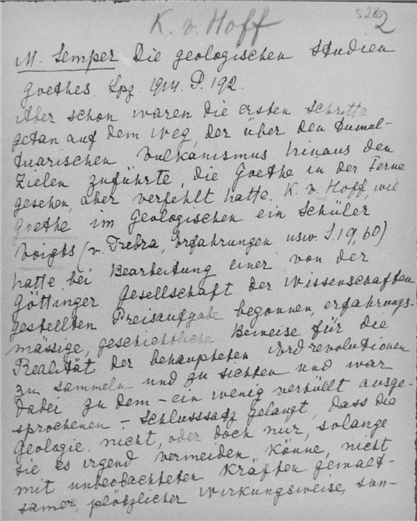 K. v. Hoff
2
M. Semper Die geologischen Studien
Goethes. Lpz. 1914. P. 192.
Aber schon waren die ersten Schritte
getan auf dem Weg, der über den tumul-
tuarischen Vulkanismus hinaus den
Zielen zuführte, die Goethe in der Ferne
gesehen, aber verfehlt hatte. K. v. Hoff, wie
Goethe im Geologischen ein Schüler
Voigts (v. Trebra, Erfahrungen usw. S 19, 60)
hatte bei Bearbeitung einer von der
Göttinger Gesellschaft der Wissenschaften
gestellten Preisaufgabe begonnen, erfahrungs-
mässige, geschichtliche Beweise für die
Realität der behaupteten Erdrevolutionen
zu sammeln und zu sichten und war
dabei zu dem – ein wenig verhüllt ausge-
sprochenen – Schlusssatz gelangt, dass die
Geologie nicht, oder doch nur, solange
sie es irgend vermeiden könne, nicht
mit unbeobachteten Kräften gewalt-
samer, plötzlicher Wirkungsweise, son-